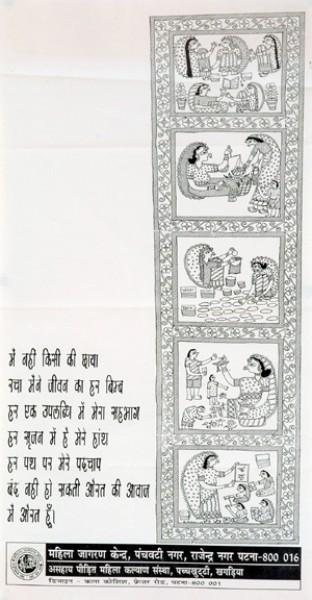 में नहीं किसी की छाया
रचा मैंने जीवन का हर बिम्ब
हर एक उपलब्धि में मेरा सहभाग
हर सृजन में है मेरे हांथ
हर पथ पर मेरे पदचाप
बंद नहीं हो सकती औरत की आवाज
में औरत हूँ।
महिला जागरण केन्द्र, पंचवटी नगर, राजेन्द्र नगर पटना-800 016
असहाय पीड़ित महिला कल्याण संस्था, पच्चखुट्टी, खगड़िया
डिजाइन - कला कोशिश, फ्रेजर रोड, पटना-800 001